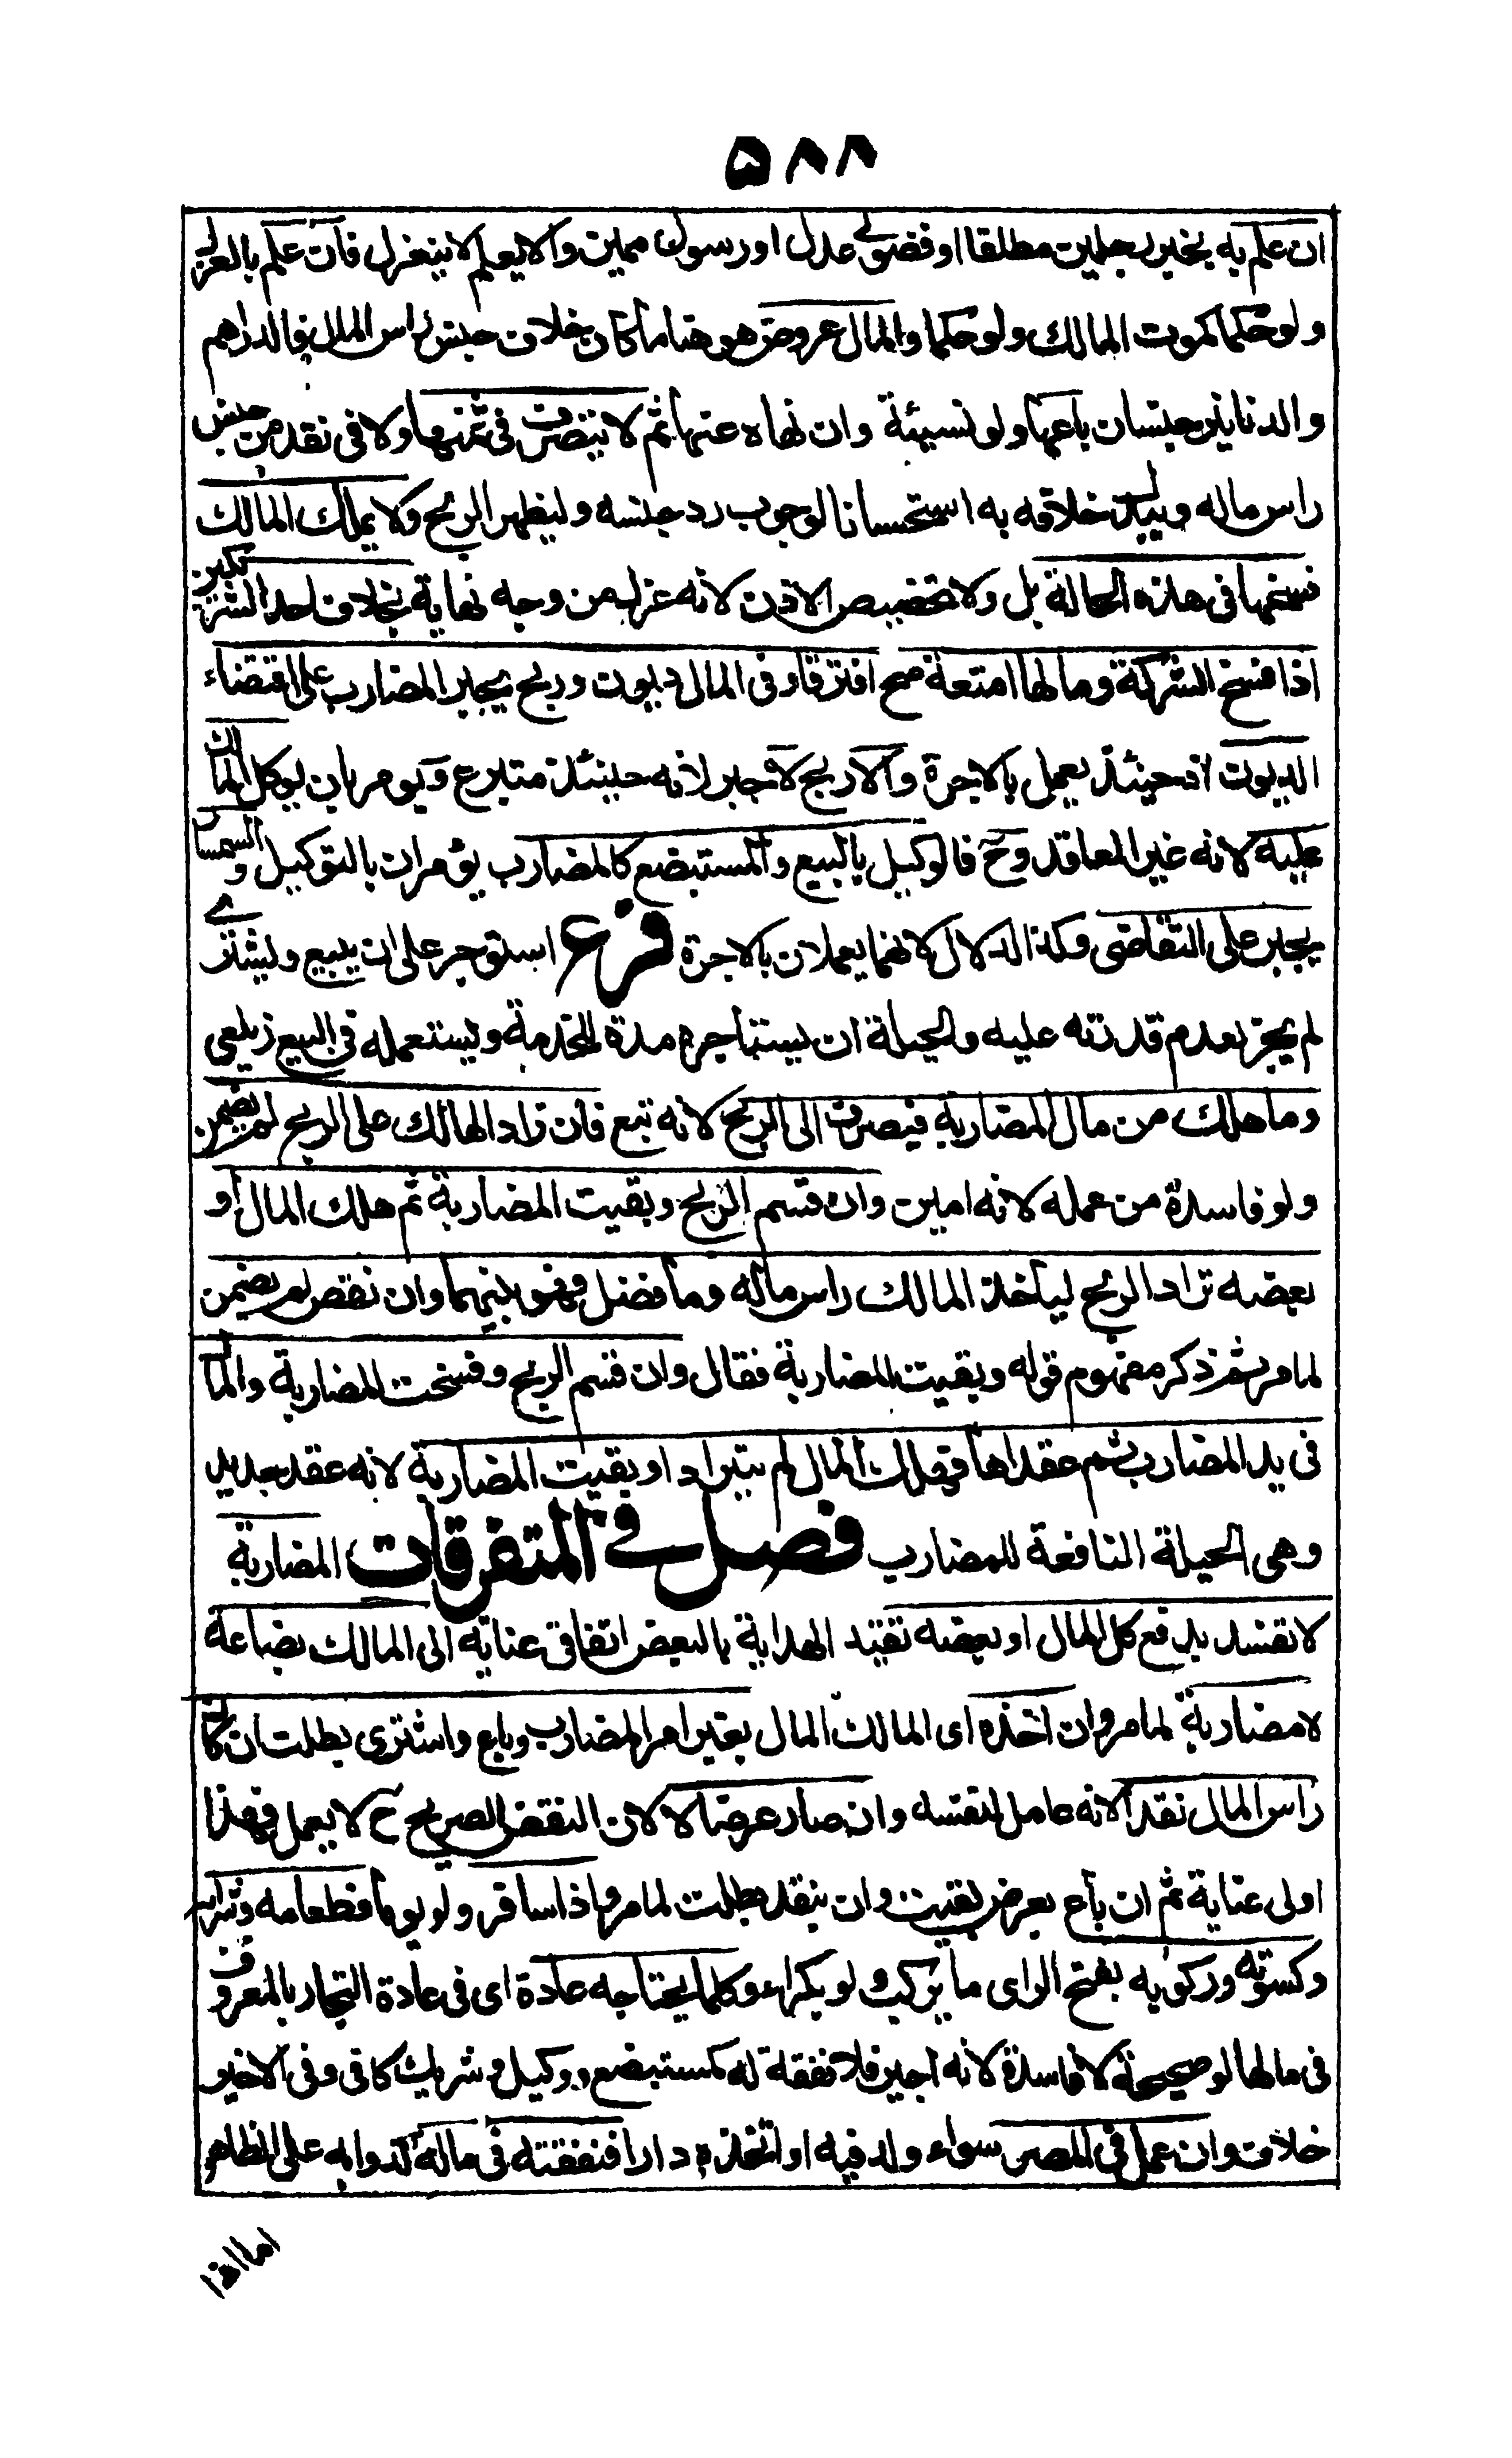 ۵۸۸
ان علم به بخبر رجلين مطلقا او فضولى عدل او رسول مميز والا يعلم لا ينعزل فان علم بالعزل
ولو حكما كموت المالك ولو حكما والمال عروض هو هنا ما كان خلاف جنس راس المال فالدراهم
والدنانير جنسان باعها ولو نسيئة وان نهاه عنها ثم لا يتصرف فى ثمنها ولا فى نقد من جنس
راس ماله ويبدل خلافه به استحسانا لوجوب رد جنسه وليظهر الربح ولا يملك المالك
فسخها فى هذه الحالة بل ولا تخصيص الاذن لانه عزل من وجه نهاية بخلاف احد الشريكين
اذا فسخ الشركة ومالها امتعة صح افترقا وفى المال ديون وربح يجبر المضارب على اقتضاء
الديون اذ حينئذ يعمل بالاجرة والا ربح لا جبر لانه حينئذ متبرع ويومر بان يوكل المالك
عليه لانه غير العاقد وح فالوكيل بالبيع والمستبضع كالمضارب يؤمران بالتوكيل والسمسار
يجبر على التقاضى وكذا الدلال لانهما يعملان بالاجرة فرع استوجر على ان يبيع ويشترے
لم يجز لعدم قدرته عليه والحيلة ان يستاجره مدة للخدمة ويستعمله فى البيع زيلعى
وما هلك من مال المضاربة فيصرف الى الربح لانه تبع فان زاد الهالك على الربح لم يضمن
ولو فاسدة من عمله لانه امين وان قسم الربح وبقيت المضاربة ثم هلك المال او
بعضه تراد الربح لياخذ المالك راس ماله وما فضل فهو بينهما وان نقص لم يضمن
لما مر ثم ذكر مفهوم قوله وبقيت المضاربة فقال وان قسم الربح وفسخت المضاربة والمال
فى يد المضارب ثم عقداها فهلك المال لم يترادا وبقيت المضاربة لانه عقد جديد
وهى الحيلة النافعة للمضارب فصل فے المتفرقات المضاربة
لا تفسد بدفع كل المال او بعضه تقييد الهداية بالبعض اتفاقى عناية الى المالك بضاعة
لا مضاربة لما مر وان اخذه اى المالك المال بغير امر المضارب وباع واشترى بطلت ان كان
راس المال نقدا لانه عامل لنفسه وان صار عرضا لا لان النقض الصريح ح لا يعمل فهذا
اولى عناية ثم ان باع بعرض بقيت وان بنقد بطلت لما مر واذا سافر ولو يوما فطعامه وشرابه
وكسوته وركوبه بفتح الراى ما يركب ولو بكراء وكلما يحتاجه عادة اى فى عادة التجار بالمعروف
فى مالها لو صحيحة لا فاسدة لانه اجير فلا نفقة له كمستبضع ووكيل وشريك كافى وفى الاخير
خلاف وان عمل فى المصر سواء ولد فيه او اتخذه دارا فنفقته فى ماله كدوائه على الظاهر
اما اذا